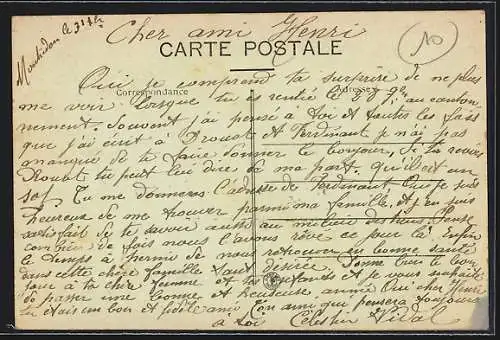 Cher ami Henri
le 31 Xbre
10
CARTE POSTALE
Correspondance
Adresse
Oui je comprend ta surprise de ne plus
me voir lorsque tu es rentré le 28 au canton-
nement. Souvent j'ai pensé à toi et toutes les fois
que j'ai écrit à Drouot et Ferdinant je n'ai pas
manqué de te faire donner le bonjour. Si tu revois
Drouot tu peut lui dire de ma part qu'il est un
sot. Tu me donneras l'adresse de Ferdinant. Oui je suis
heureuse de me trouver parmi ma famille et j'en suis
satisfait de te savoir aussi au milieu des tiens. Pense
combien de fois nous l'avons rêvé ce jour là. Enfin
le temps à permis de nous retrouver en bonne santé
dans cette chère famille tant désirée. Donne bien le bon-
jour à ta chère femme et ta enfants et je vous souhaite
de passer une bonne et heureuse année Oui cher Henri
et à un bon et fidèle ami. Ton ami que pensera toujours
à toi Célestin Vidal